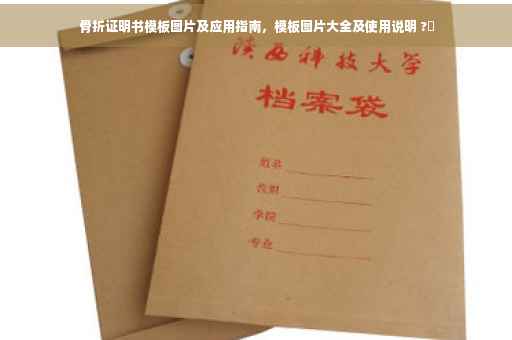 骨折证明书模板图片及应用指南，模板图片大全及使用说明 ?
陕西科技大学
档案袋
姓名
学院
专业